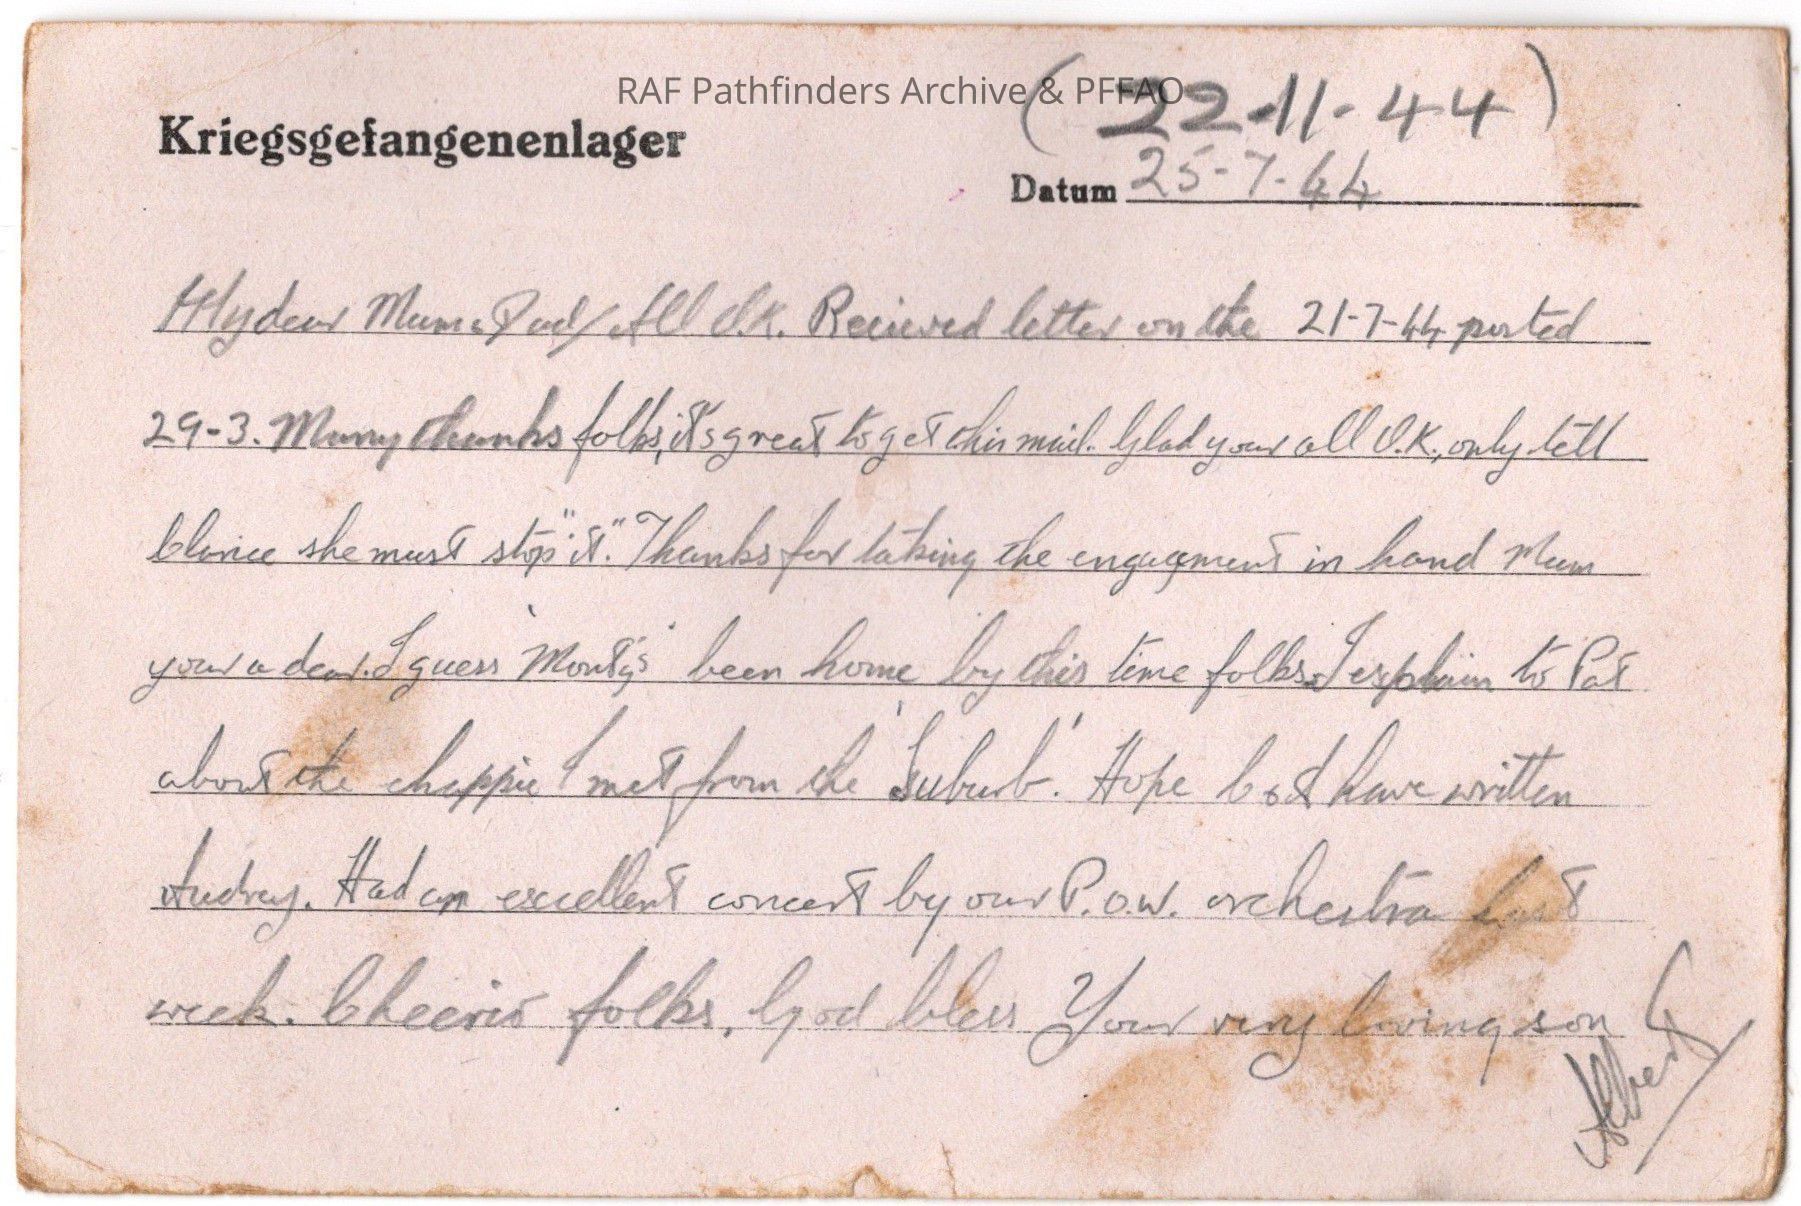 RAF Pathfinders Archive & PFFAO
(22-11-44)
Kriegsgefangenenlager
Datum 25-7-44
My dear Mum & Dad/ All O.K. Recieved letter on the 21-7-44 posted
29-3. Many thanks folks, it's great to get this mail. Glad your all O.K., only tell
Clarice she must stop "it". Thanks for taking the engagement in hand Mum
your a dear. I guess 'Monty's' been home by this time folks. I explain to Pat
about the chappie I met from the 'Suburb'. Hope C & I have written
Audrey. Had an excellent concert by our P.O.W. orchestra last
week. Cheerio folks, God bless Your very loving son
Albert